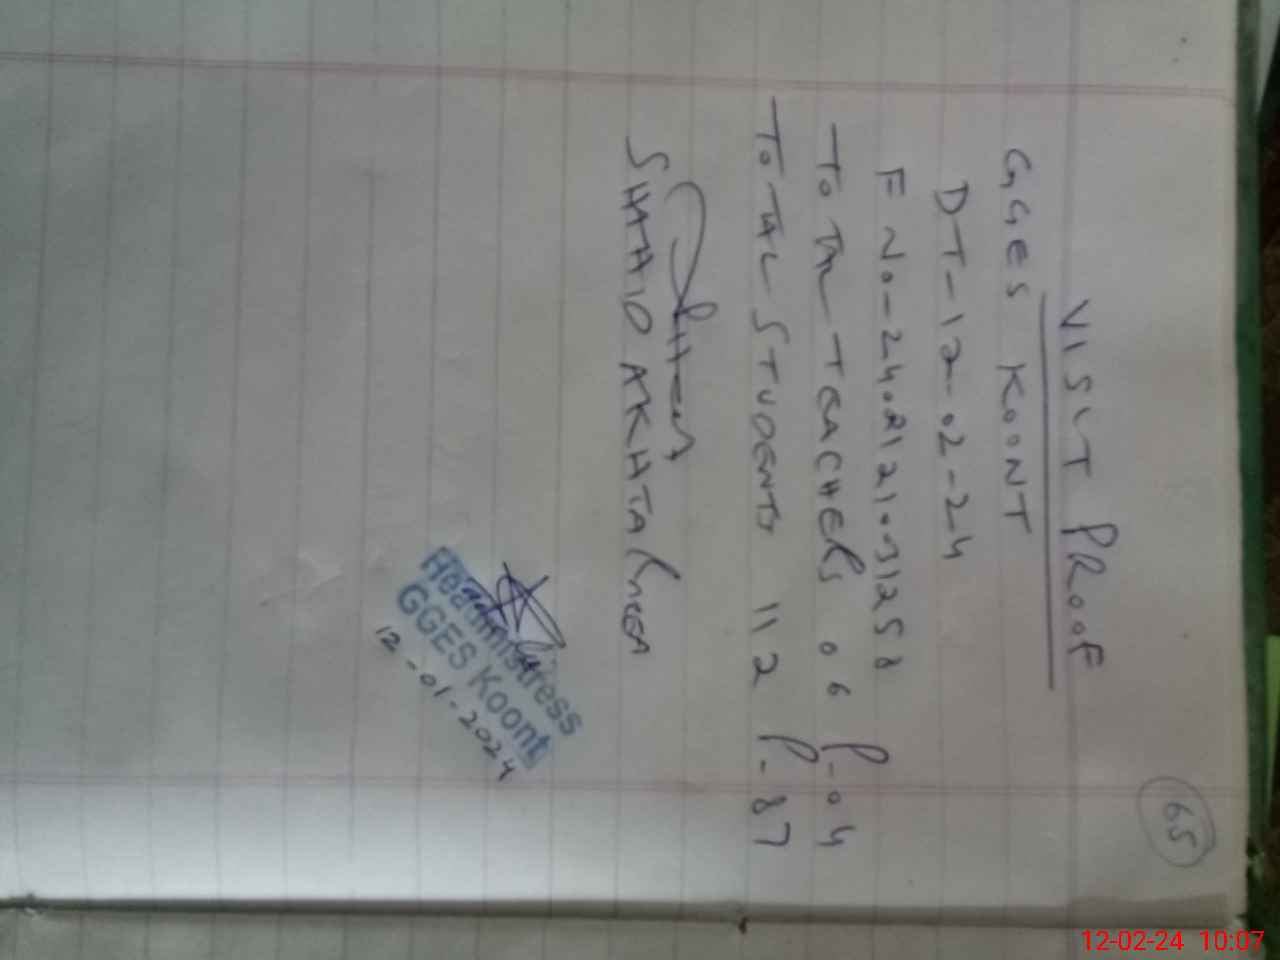 65
VISIT PROOF
GGES KOONT
DT-12-02-24
F No-24021210031258
TOTAL TEACHERS 06 P-04
TOTAL STUDENTS 112 P-87
SHAHID AKHTAR
Headmistress
GGES Koont
12-01-2024
12-02-24 10:07